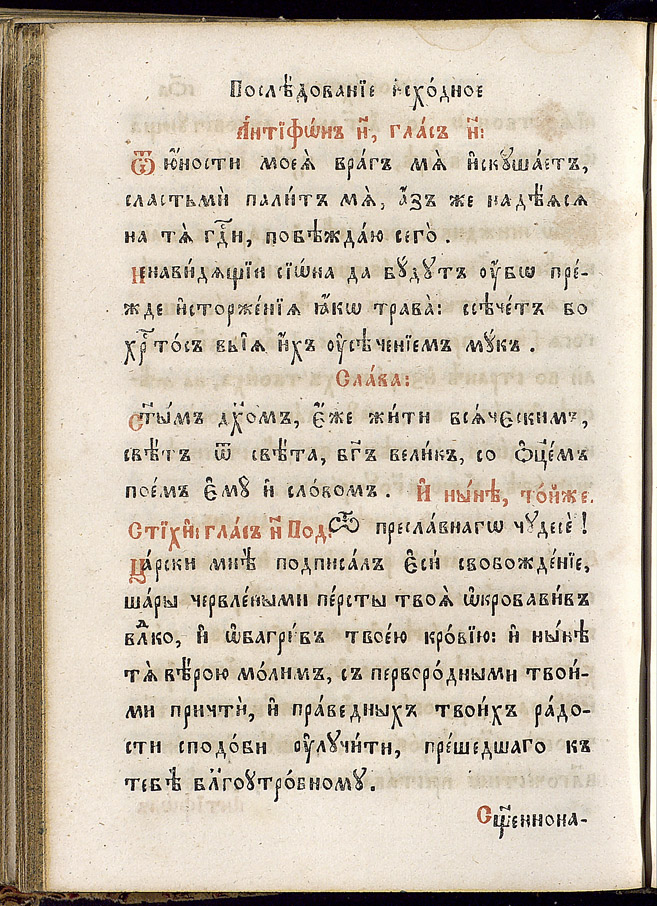 Послѣ́дованїе и҆схо́дное
А҆нтїфѡ́нъ и҃, гла́съ и҃:
Ѿ ю҆́ности моеѧ̀ вра́гъ мѧ̀ и҆скꙋша́етъ,
сластьмѝ пали́тъ мѧ̀, а҆́зъ же надѣ́ѧсѧ
на тѧ̀ гдⷭ҇и, побѣжда́ю сего̀.
Ненави́дѧщїи сїѡ́на да бꙋ́дꙋтъ оу҆́бѡ пре́-
жде и҆сторже́нїѧ ꙗ҆́кѡ трава̀: ссѣче́тъ бо
хрⷭ҇то́съ вы́ѧ и҆́хъ оу҆сѣче́нїемъ мꙋ́къ.
Сла́ва:
Ст҃ы́мъ дх҃омъ, є҆́же жи́ти всѧ́ческимъ,
свѣ́тъ ѿ свѣ́та, бг҃ъ вели́къ, со ѻ҆ц҃е́мъ
пое́мъ є҆мꙋ̀ и҆ сло́вомъ. И҆ ны́нѣ, то́йже.
Стїхи̑: гла́съ и҃ Под. Ѽ пресла́внагѡ чꙋдесѐ!
Ца́рски мнѣ̀ подписа́лъ є҆сѝ свобожде́нїе,
ша́ры червле́ными пе́рсты твоѧ̑ ѡ҆крова́вивъ
вл҃ко, и҆ ѡ҆багри́въ твое́ю кро́вїю: и҆ ны́нѣ
тѧ̀ вѣ́рою мо́лимъ, съ перворо́дными твои́-
ми причтѝ, и҆ пра́ведныхъ твои́хъ ра́до-
сти сподо́би оу҆лꙋчи́ти, пре́шедшаго къ
тебѣ̀ бл҃гоꙋтро́бномꙋ.
Сщ҃еннона-